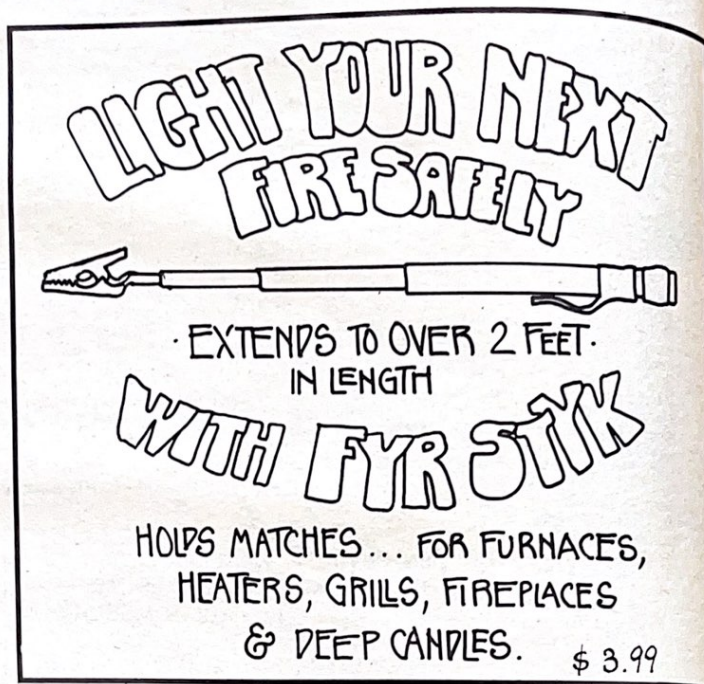 LIGHT YOUR NEXT
FIRE SAFELY
· EXTENDS TO OVER 2 FEET ·
IN LENGTH
WITH FYR STYK
HOLDS MATCHES... FOR FURNACES,
HEATERS, GRILLS, FIREPLACES
& DEEP CANDLES.
$ 3.99